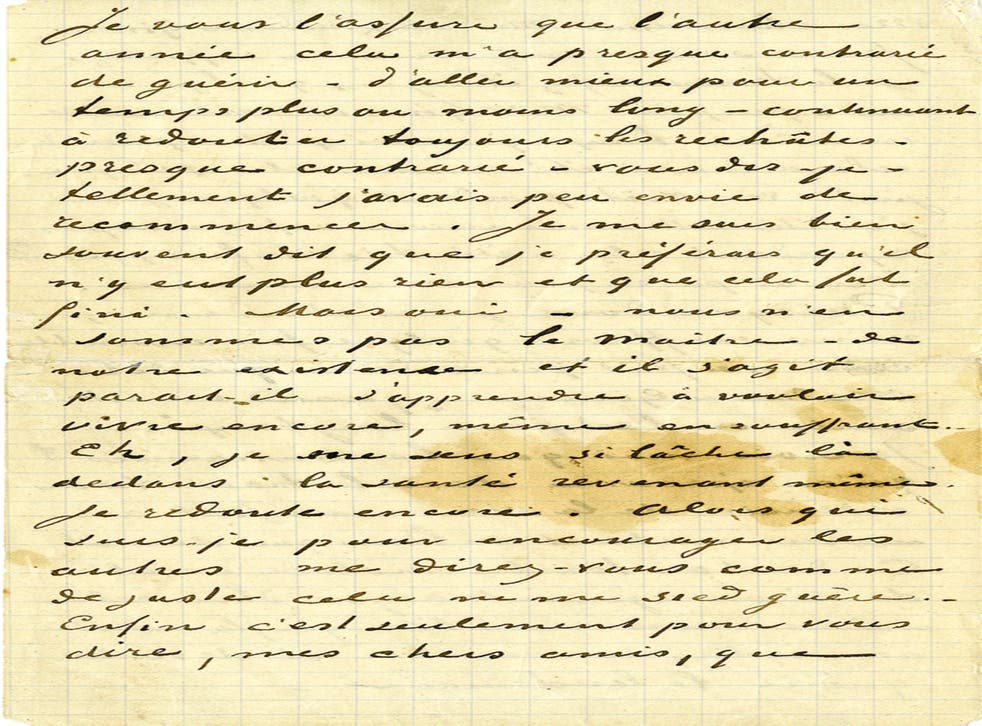 Je vous l'assure que l'autre
année cela m'a presque contrarié
de guérir - d'aller mieux pour un
temps plus ou moins long - continuant
à redouter toujours les rechûtes -
presque contrarié - vous dis-je -
tellement j'avais peu envie de
recommencer. Je me suis bien
souvent dit que je préférais qu'il
n'y eut plus rien et que cela fut
fini - Mais oui - nous n'en
sommes pas le maitre - de
notre existence et il s'agit
parait-il d'apprendre à vouloir
vivre encore, même en souffrant. -
Eh, je me sens si lâche là
dedans : la santé revenant même.
Je redoute encore. Alors qui
suis-je pour encourager les
autres me direz-vous comme
de juste cela ne me sied guère. -
Enfin c'est seulement pour vous
dire, mes chers amis, que